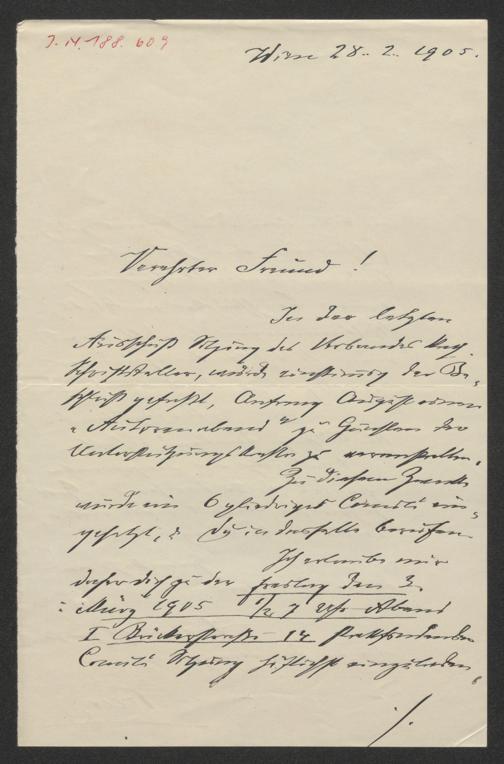 J.N. 188.609
Wien 28. 2. 1905.
Verehrter Freund!
In der letzten
Ausschuß Sitzung des Verbandes kath.
Schriftsteller, wurde einstimmig der Be-
schluß gefaßt, Anfang August einen
"Autorenabend" zu Gunsten der
Unterstützungskasse zu veranstalten.
Zu diesem Zwecke
wurde ein 6 gliedriges Comité ein-
gesetzt, & Du in dasselbe berufen.
Ich erlaube mir
daher dich zu der Freitag den 3.
März 1905 1/2 7 Uhr Abend
I Bäckerstraße 14 stattfindenden
Comité Sitzung höflichst einzuladen
./.